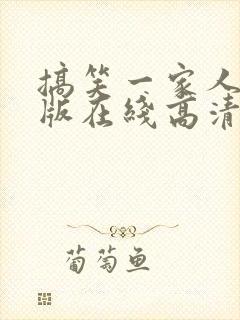 搞笑一家人
版在线高清
葡萄鱼